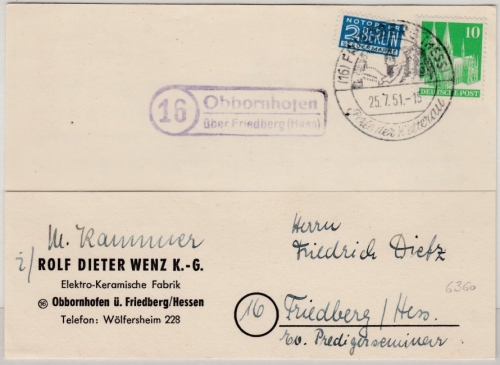 NOTOPFER
2 BERLIN
STEUERMARKE
10
DEUTSCHE POST
(16)
(HESS)
25.7.51.-15
16
Obbornhofen
über Friedberg (Hess)
M. Kammer
i/ ROLF DIETER WENZ K.-G.
Elektro-Keramische Fabrik
16 Obbornhofen ü. Friedberg/Hessen
Telefon: Wölfersheim 228
Herrn
Friedrich Dietz
6360
16 Friedberg/Hess.
Ev. Predigerseminar